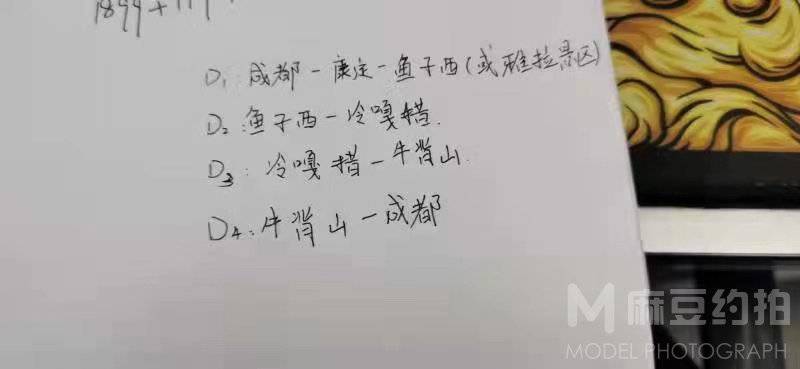 1899+119
D1: 成都-康定-鱼子西(或雅拉景区)
D2: 鱼子西-冷嘎措.
D3: 冷嘎措-牛背山.
D4: 牛背山-成都
M 麻豆约拍
MODEL PHOTOGRAPH